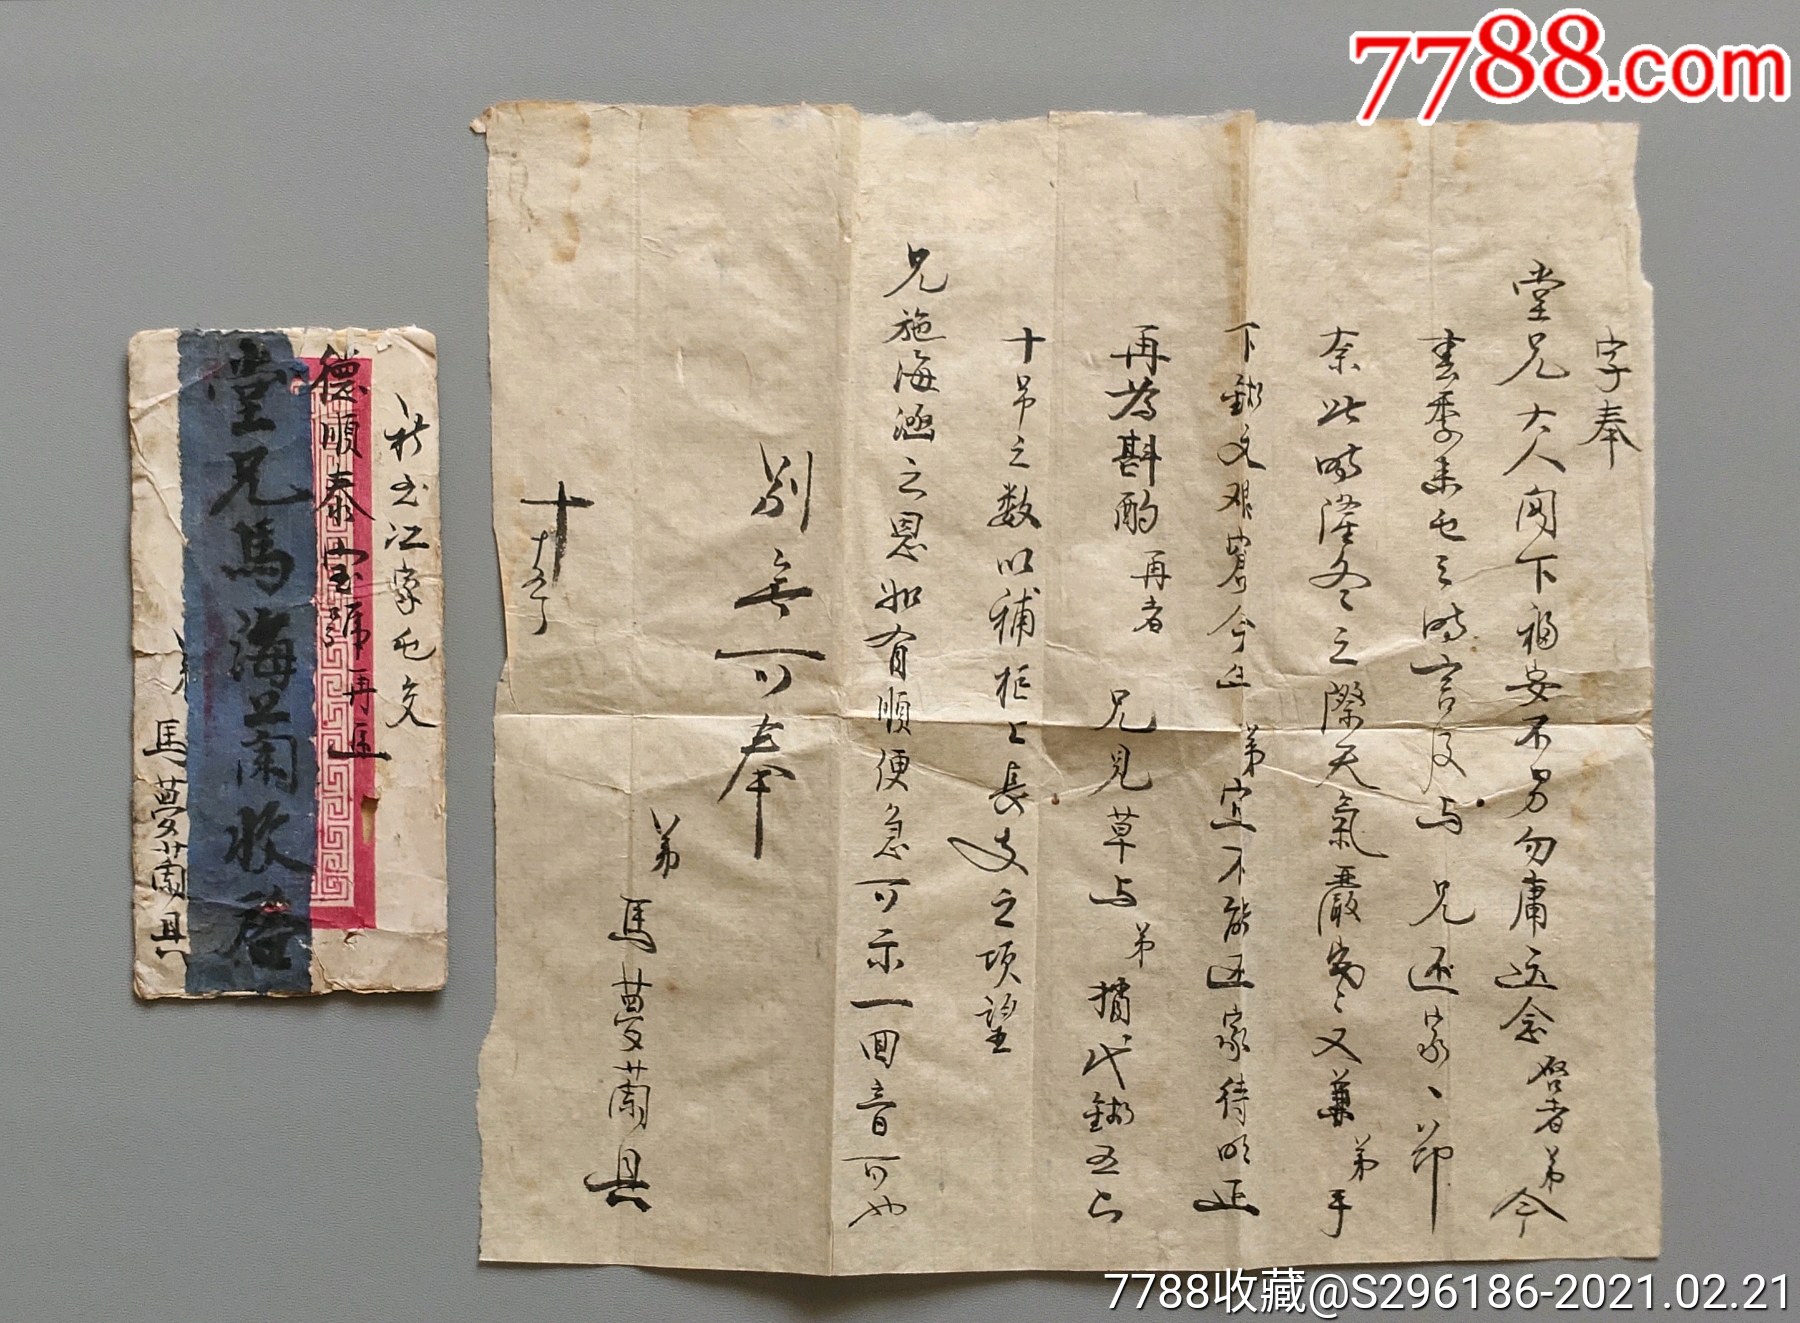 7788.com
字奉
堂兄大人阁下福安不另勿庸远念啓者弟今
書季来屯之時言及与兄还家、節
奈此時隆冬之際天氣嚴寒又兼弟手
下錢文艰窘今正弟宜不能还家待明正
再為斟酌再者兄見草与弟撥代錢五六
十吊之数以補柜上長支之項望
兄施海涵之恩如有順便急可示一回音可也
别無可奉
弟馬夢蘭具
十
十五
祈
江家屯交
德順泰宝號再
堂兄馬海蘭收啓
馬夢蘭具
7788收藏@S296186-2021.02.21